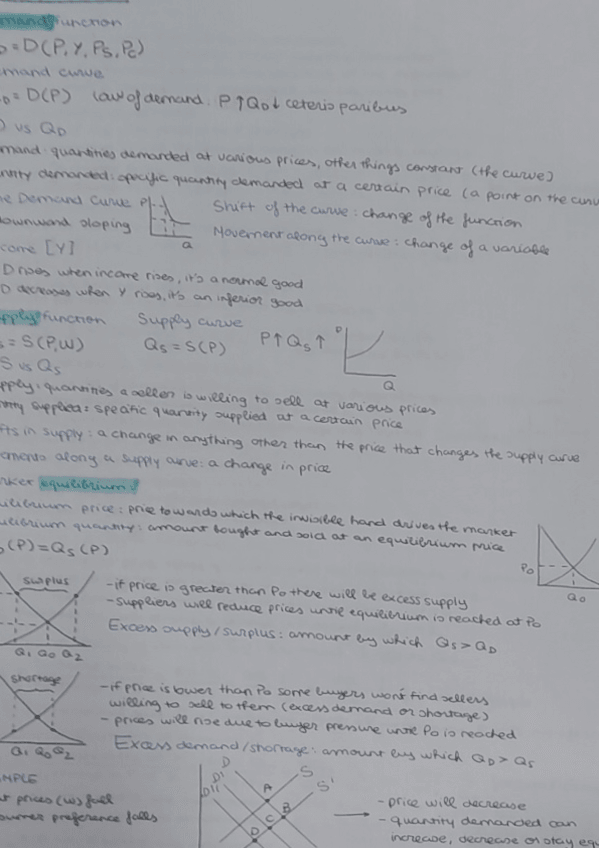 mands function
= D(P, Y, Ps, Pc)
mand curve
D = D(P) law of demand. P↑ QD↓ ceteris paribus
vs QD
mand: quantities demanded at various prices, other things constant (the curve)
ntity demanded: specific quantity demanded at a certain price (a point on the curve
e Demand Curve P Shift of the curve: change of the function
downward sloping Q Movement along the curve: change of a variable
come [Y]
D rises when income rises, it's a normal good
D decreases when Y rises, it's an inferior good
pply function Supply curve
s = S(P,W) Qs = S(P) P↑ Qs↑ P Q
S vs Qs
pply: quantities a seller is willing to sell at various prices
ntity supplied: specific quantity supplied at a certain price
fts in supply: a change in anything other than the price that changes the supply curve
ements along a supply curve: a change in price
rket equilibrium
uilibrium price: price towards which the invisible hand drives the market
uilibrium quantity: amount bought and sold at an equilibrium price
(P) = Qs (P) P0 Q0
surplus
- if price is greater than P0 there will be excess supply
- suppliers will reduce prices until equilibrium is reached at P0
Excess supply/surplus: amount by which Qs > QD
Q1 Q0 Q2
shortage
- if price is lower than P0 some buyers won't find sellers
willing to sell to them (excess demand or shortage)
- prices will rise due to buyer pressure until P0 is reached
Q1 Q0 Q2
Excess demand/shortage: amount by which QD > Qs
MPLE
t prices (w) fall
sumer preference falls
D D' D'' S S'
A B C D
- price will decrease
- quantity demanded can
increase, decrease or stay equ